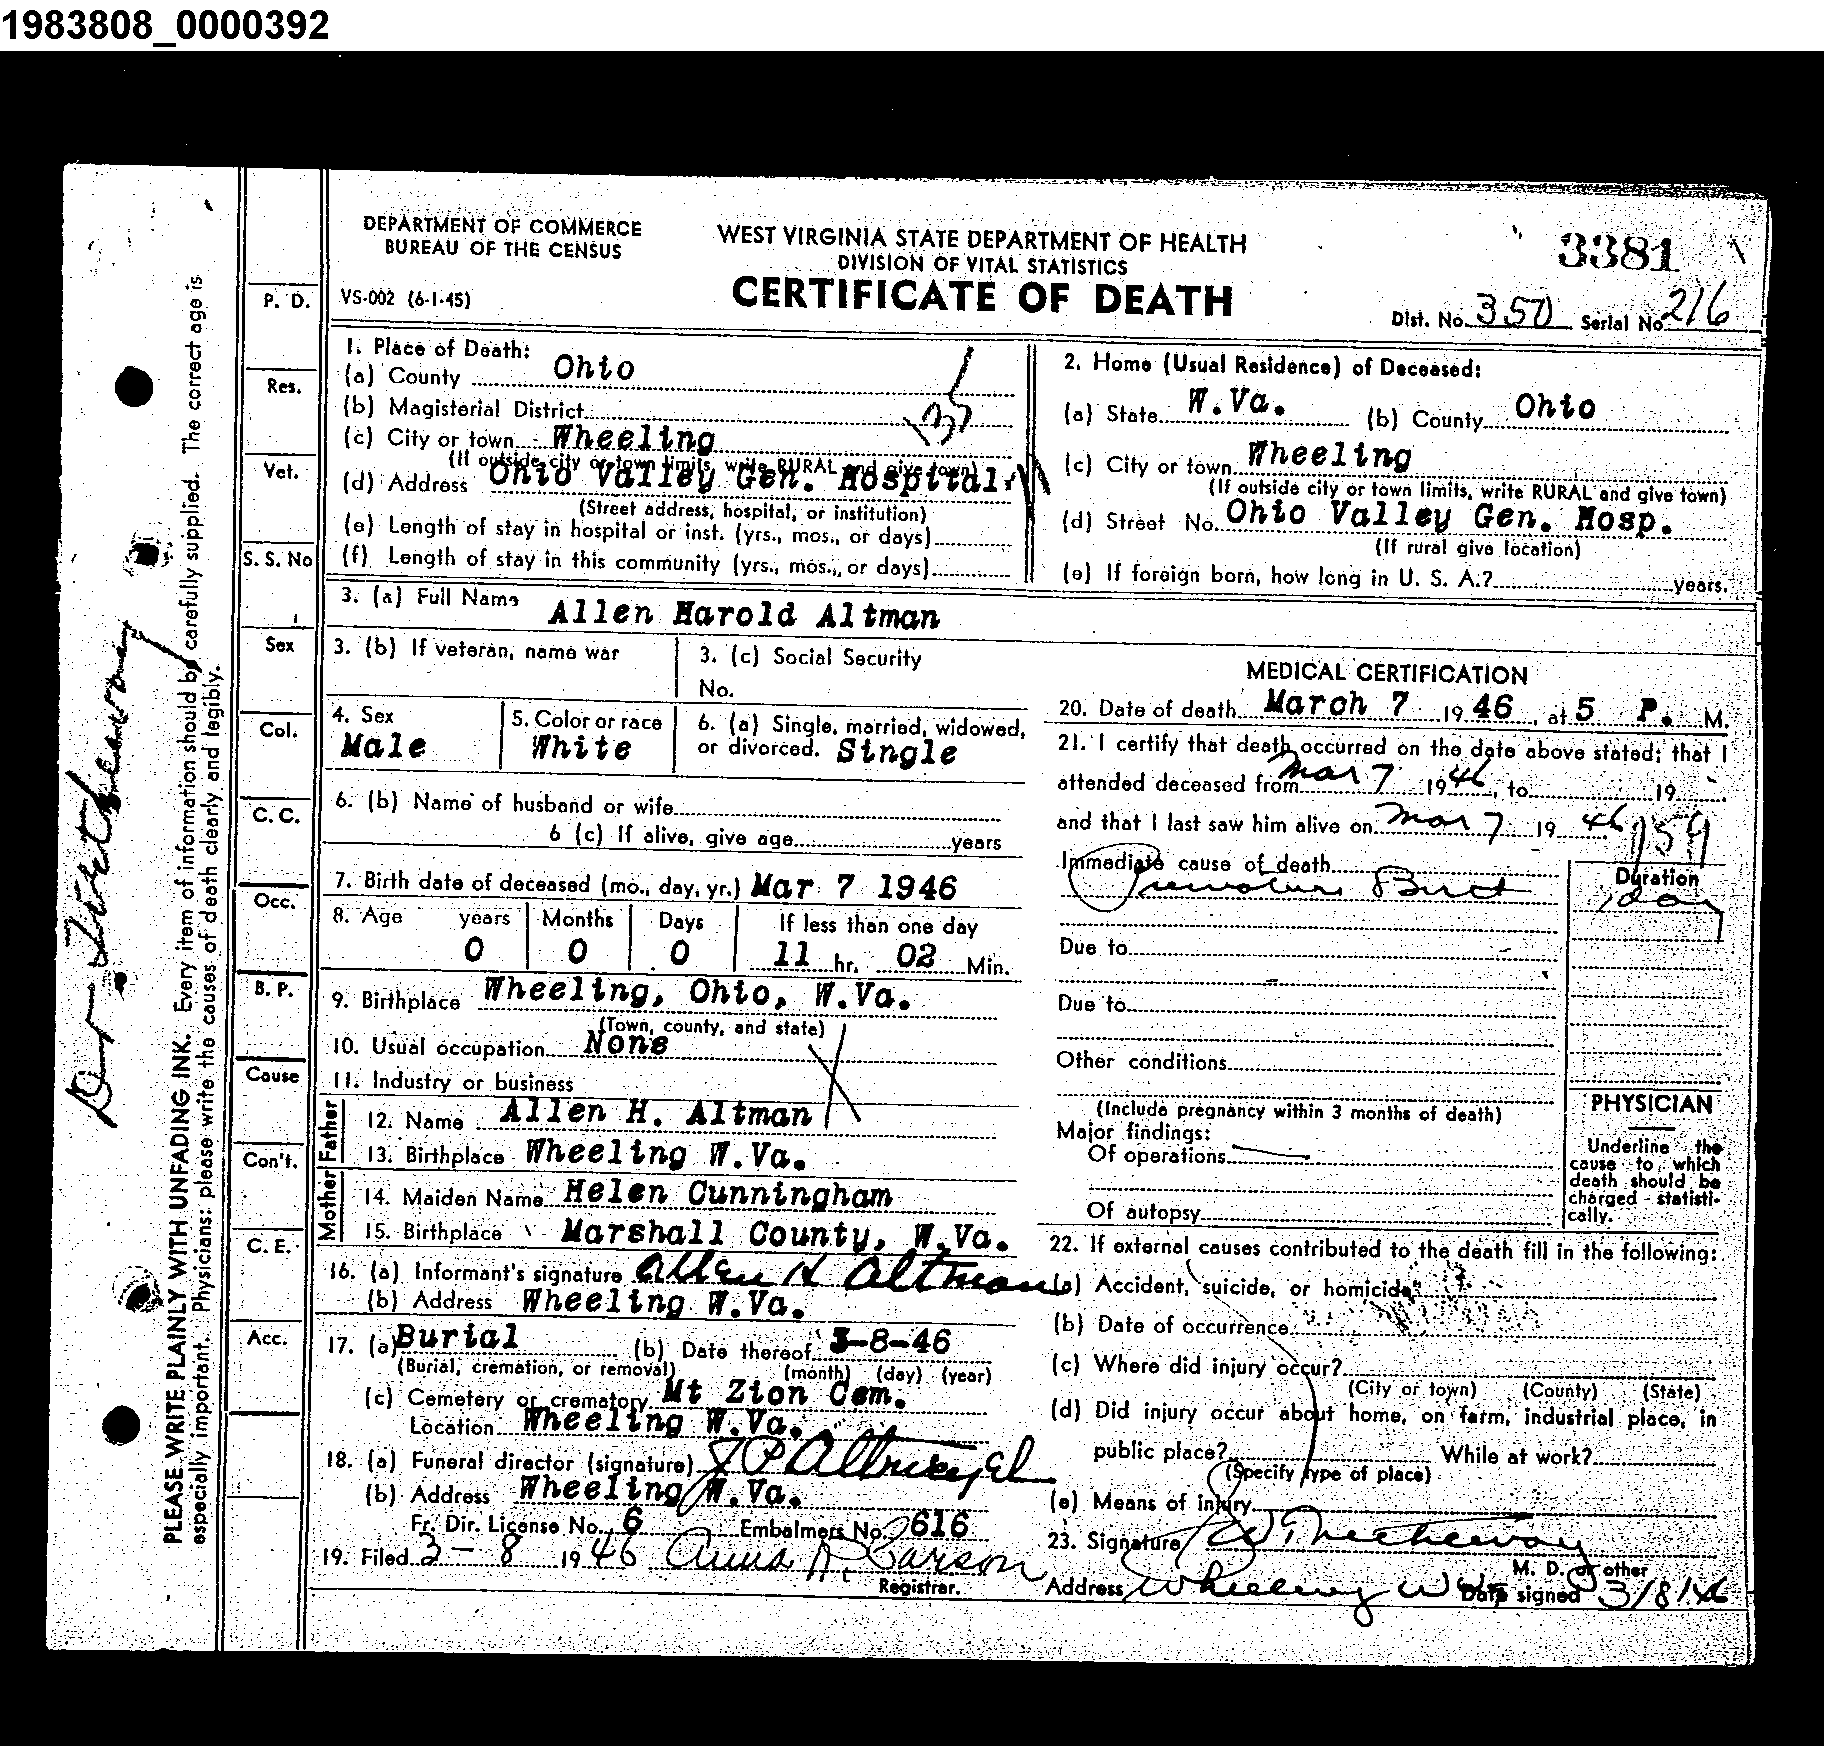 1983808_0000392
DEPARTMENT OF COMMERCE
BUREAU OF THE CENSUS
WEST VIRGINIA STATE DEPARTMENT OF HEALTH
DIVISION OF VITAL STATISTICS
CERTIFICATE OF DEATH
3381
VS-002 (6-1-45)
Dist. No. 350 Serial No. 216
P. D.
Res.
Vet.
S. S. No
Sex
Col.
C. C.
Occ.
B. P.
Cause
Con't.
C. E.
Acc.
PLEASE WRITE PLAINLY WITH UNFADING INK. Every item of information should be carefully supplied. The correct age is
especially important. Physicians: please write the causes of death clearly and legibly.
1. Place of Death:
(a) County Ohio
(b) Magisterial District
(c) City or town Wheeling
(If outside city or town limits, write RURAL and give town)
(d) Address Ohio Valley Gen. Hospital
(Street address, hospital, or institution)
(e) Length of stay in hospital or inst. (yrs., mos., or days)
(f) Length of stay in this community (yrs., mos., or days)
2. Home (Usual Residence) of Deceased:
(a) State W.Va. (b) County Ohio
(c) City or town Wheeling
(If outside city or town limits, write RURAL and give town)
(d) Street No. Ohio Valley Gen. Hosp.
(If rural give location)
(e) If foreign born, how long in U. S. A.? years.
3. (a) Full Name Allen Harold Altman
3. (b) If veteran, name war
3. (c) Social Security
No.
4. Sex
Male
5. Color or race
White
6. (a) Single, married, widowed,
or divorced. Single
6. (b) Name of husband or wife
6 (c) If alive, give age years
7. Birth date of deceased (mo., day, yr.) Mar 7 1946
8. Age years Months Days If less than one day
0 0 0 11 hr. 02 Min.
9. Birthplace Wheeling, Ohio, W.Va.
(Town, county, and state)
10. Usual occupation None
11. Industry or business
Father
12. Name Allen H. Altman
13. Birthplace Wheeling W.Va.
Mother
14. Maiden Name Helen Cunningham
15. Birthplace Marshall County, W.Va.
16. (a) Informant's signature Allen H Altman
(b) Address Wheeling W.Va.
17. (a) Burial (b) Date thereof 3-8-46
(Burial, cremation, or removal) (month) (day) (year)
(c) Cemetery or crematory Mt Zion Cem.
Location Wheeling W.Va.
18. (a) Funeral director (signature) J P
(b) Address Wheeling W.Va.
Fr. Dir. License No. 6 Embalmers No. 2616
19. Filed 3-8 1946 Anna R. Carson
Registrar.
MEDICAL CERTIFICATION
20. Date of death March 7 1946, at 5 P. M.
21. I certify that death occurred on the date above stated; that I
attended deceased from Mar 7 1946, to 19
and that I last saw him alive on Mar 7 19 46
159
Immediate cause of death
Premature Birth
Duration
1 day
Due to
Due to
Other conditions
(Include pregnancy within 3 months of death)
Major findings:
Of operations
Of autopsy
PHYSICIAN
Underline the
cause to which
death should be
charged statisti-
cally.
22. If external causes contributed to the death fill in the following:
(a) Accident, suicide, or homicide
(b) Date of occurrence
(c) Where did injury occur?
(City or town) (County) (State)
(d) Did injury occur about home, on farm, industrial place, in
public place? While at work?
(Specify type of place)
(e) Means of injury
23. Signature
M. D. or other
Address Wheeling W Va Date signed 3/8/46